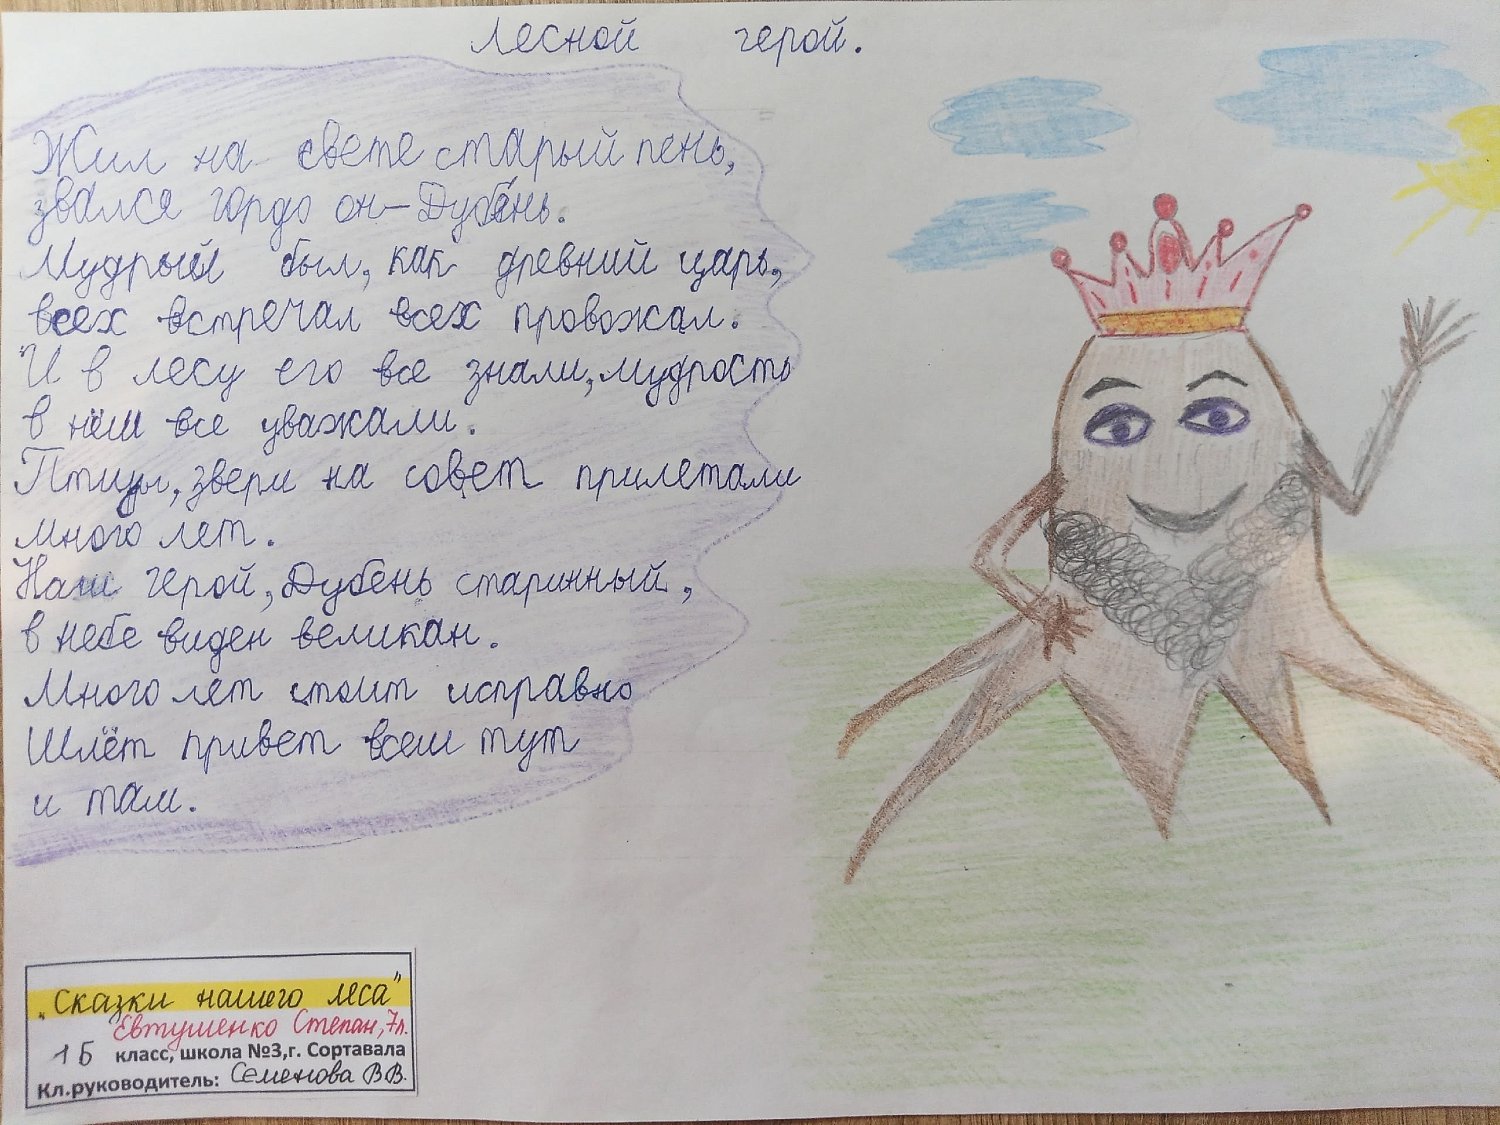 Лесной герой.
Жил на свете старый пень,
звался гордо он - Дубе́нь.
Мудрый был, как древний царь,
всех встречал всех провожал.
И в лесу его все знали, мудрость
в нём все уважали.
Птицы, звери на совет прилетали
много лет.
Наш герой, Дубень старинный,
в небе виден великан.
Много лет стоит исправно
Шлёт привет всем тут
и там.
"Сказки нашего леса"
Евтушенко Степан, 7л.
1Б класс, школа №3, г. Сортавала
Кл.руководитель: Семенова В.В.